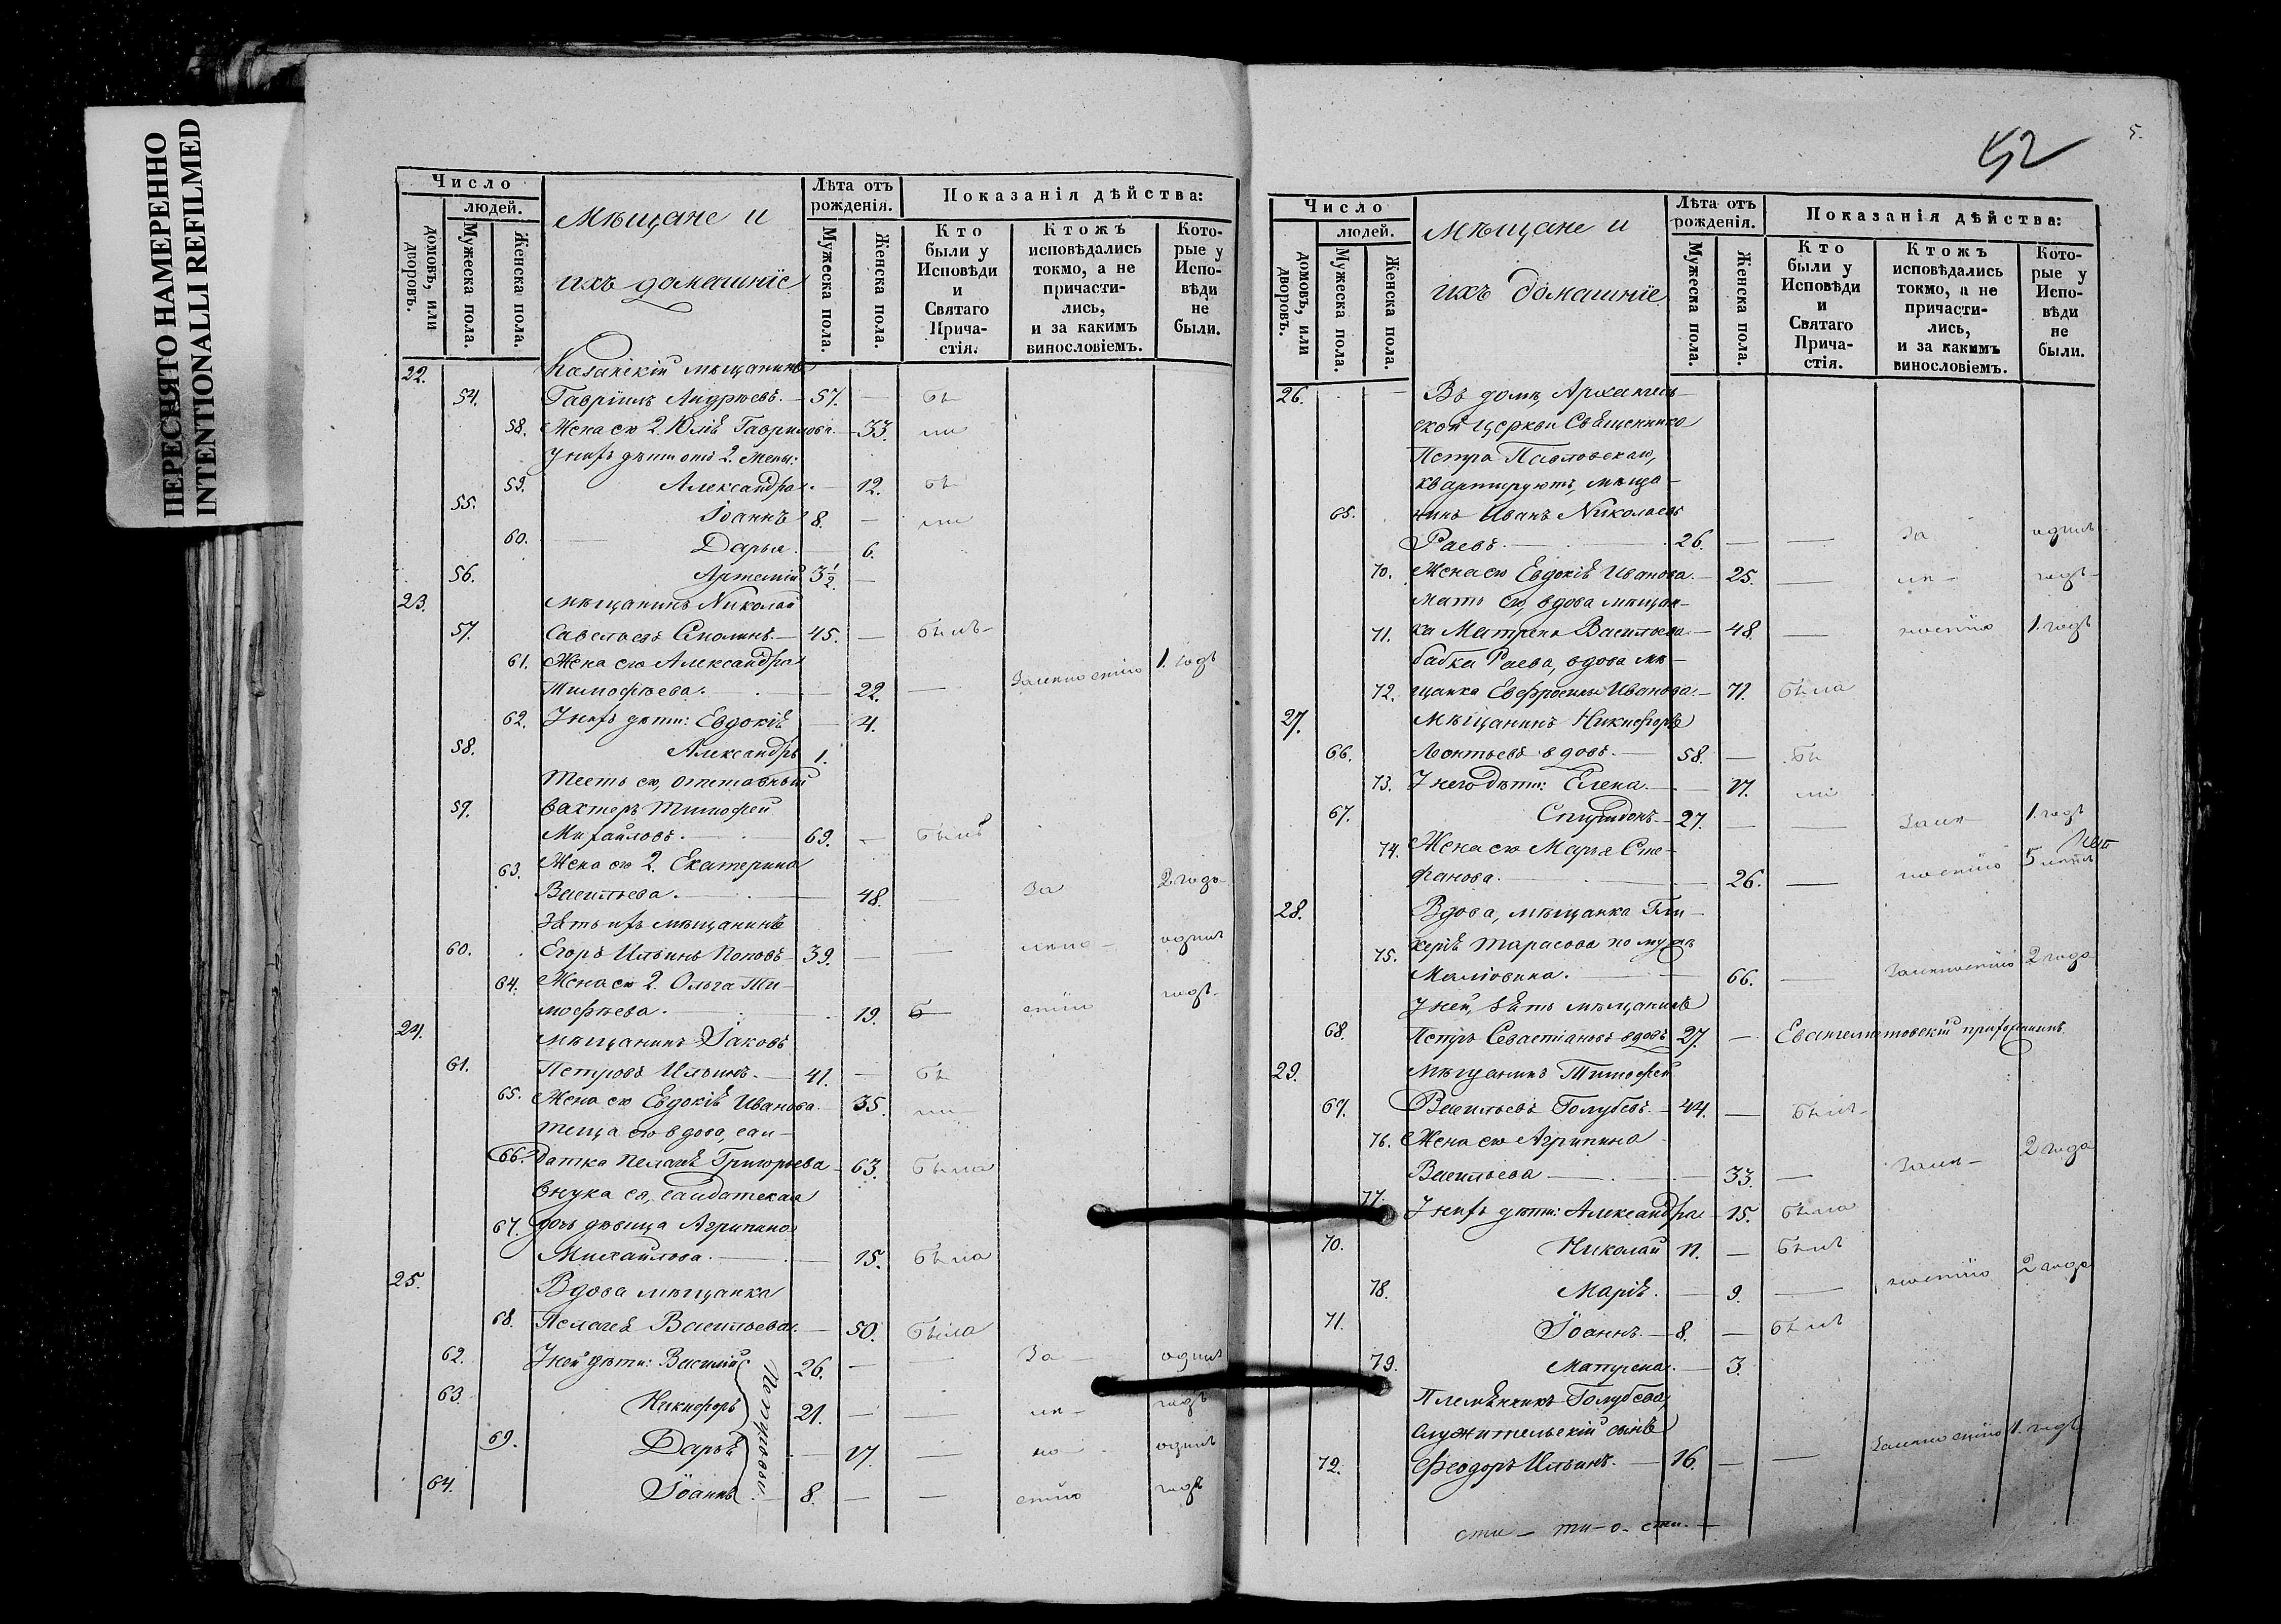 ПЕРЕСНЯТО НАМЕРЕННО
INTENTIONALLI REFILMED
Число
людей.
домовъ, или дворовъ.
Мужеска пола.
Женска пола.
Мѣщане и
ихъ домашніе
Лѣта отъ рожденія.
Мужеска пола.
Женска пола.
Показанія дѣйства:
Кто были у Исповѣди и Святаго Прича-стія.
Ктожъ исповѣдались токмо, а не причасти-лись, и за какимъ винословіемъ.
Кото-рые у Испо-вѣди не были.
22. Казанскій мѣщанинъ
54. Гавріилъ Андреевъ. — 57. — бы
58. Жена его 2. Юлія Гаврилова. — 33. ли
У нихъ дѣти отъ 2. жены:
59. Александра. — 12. бы
55. Іоаннъ 8. — ли
60. Дарья. — 6.
56. Артемій 3½. —
23. Мѣщанинъ Николай
57. Савельевъ Смолинъ. — 45. — былъ
61. Жена его Александра
Тимофѣева. — 22. — За лѣностію 1. годъ
62. У нихъ дѣти: Евдокія — 4.
58. Александръ 1.
Тесть его, отставный
59. вахтеръ Тимофей
Михайловъ. — 69. — былъ
63. Жена его 2. Екатерина
Васильева. — 48. За 2 года
Зять ихъ мѣщанинъ
60. Егоръ Ильинъ Поповъ — 39. — — лѣно- одинъ
64. Жена его 2. Ольга Ти-
мофѣева. — 19. — стію годъ
24. Мѣщанинъ Іаковъ
61. Петровъ Ильинъ. — 41. — бы
65. Жена его Евдокія Иванова. — 35. ли
Теща его вдова, сал-
66. датка Пелагея Григорьева — 63. была
Внука ея, салдатская
67. дочь девица Агрипина
Михайлова. — 15. была
25. Вдова мѣщанка
68. Пелагея Васильева. — 50. была
62. У ней дѣти: Василій 26. — — За одинъ
63. Никифоръ 21. — — лѣ- годъ
69. Дарья — 17. — но- одинъ
64. Іоаннъ 8. — — стію годъ
Петровы.
52
5.
Число
людей.
домовъ, или дворовъ.
Мужеска пола.
Женска пола.
Мѣщане и
ихъ домашніе
Лѣта отъ рожденія.
Мужеска пола.
Женска пола.
Показанія дѣйства:
Кто были у Исповѣди и Святаго Прича-стія.
Ктожъ исповѣдались токмо, а не причасти-лись, и за какимъ винословіемъ.
Кото-рые у Испо-вѣди не были.
26. Въ домѣ, Архангель-
ской церкви Священника
Петра Павловскаго,
квартируютъ, мѣща-
65. нинъ Иванъ Николаевъ
Раевъ. — 26. — — За одинъ
70. Жена его Евдокія Иванова. — 25. — лѣ- годъ
Мать его, вдова мѣщан-
71. ка Матрена Васильева — 48. — ностію 1. годъ
бабка Раева, вдова мѣ-
72. щанка Евфросинья Иванова. — 71. была
27. Мѣщанинъ Никифоръ
66. Леонтьевъ вдовъ. — 58. — бы
73. У него дѣти: Елена. — 17. ли
67. Спиридонъ. — 27. — — За лѣ- 1. годъ
74. Жена его Марья Сте-
фанова. — 26. — ностію 5 лѣтъ
28. Вдова, мѣщанка Гли-
75. керія Тарасова по мужѣ
66. — За лѣностію 2 года
У ней, зять мѣщанинъ
68. Петръ Севастіановъ вдовъ 27. — Евангелистовскій прихожанинъ.
29. Мѣщанинъ Тимофей
69. Васильевъ Голубевъ. — 44. — былъ
76. Жена его Агрипина
Васильева — 33. — За лѣ- 2 года
77. У нихъ дѣти: Александра — 15. была
70. Николай 11. — былъ
78. Марія. — 9. — ностію 2 года
71. Іоаннъ. — 8. — былъ
79. Матрена. — 3.
Племянникъ Голубева,
служительскій сынъ
72. Феодоръ Ильинъ. — 16. — — За лѣностію 1. годъ